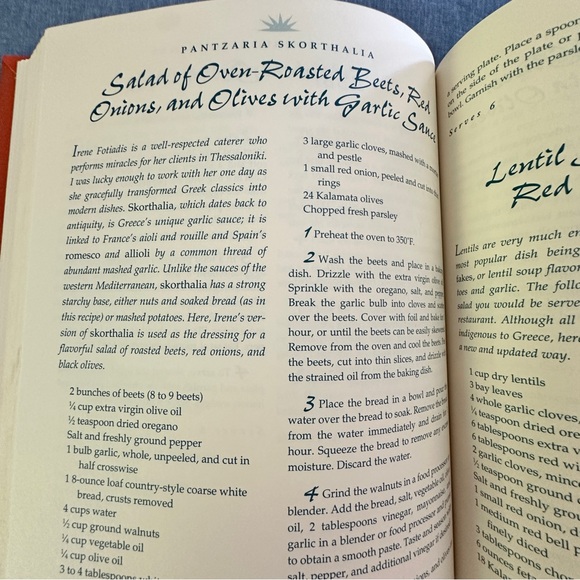 PANTZARIA SKORTHALIA
Salad of Oven-Roasted Beets, Red
Onions, and Olives with Garlic Sauce
Irene Fotiadis is a well-respected caterer who
performs miracles for her clients in Thessaloniki.
I was lucky enough to work with her one day as
she gracefully transformed Greek classics into
modern dishes. Skorthalia, which dates back to
antiquity, is Greece's unique garlic sauce; it is
linked to France's aioli and rouille and Spain's
romesco and allioli by a common thread of
abundant mashed garlic. Unlike the sauces of the
western Mediterranean, skorthalia has a strong
starchy base, either nuts and soaked bread (as in
this recipe) or mashed potatoes. Here, Irene's ver-
sion of skorthalia is used as the dressing for a
flavorful salad of roasted beets, red onions, and
black olives.
2 bunches of beets (8 to 9 beets)
¼ cup extra virgin olive oil
½ teaspoon dried oregano
Salt and freshly ground pepper
1 bulb garlic, whole, unpeeled, and cut in
half crosswise
1 8-ounce loaf country-style coarse white
bread, crusts removed
4 cups water
½ cup ground walnuts
¼ cup vegetable oil
¼ cup olive oil
3 to 4 tablespoons
3 large garlic cloves, mashed with a
and pestle
1 small red onion, peeled and cut into
rings
24 Kalamata olives
Chopped fresh parsley
1 Preheat the oven to 350°F.
2 Wash the beets and place in a baking
dish. Drizzle with the extra virgin olive
Sprinkle with the oregano, salt, and
Break the garlic bulb into cloves and
over the beets. Cover with foil and bake
hour, or until the beets can be easily
Remove from the oven and cool the
the beets, cut into thin slices, and drizzle
the strained oil from the baking dish.
3 Place the bread in a bowl and pour
water over the bread to soak. Remove the
from the water immediately and drain
hour. Squeeze the bread to remove any
moisture. Discard the water.
4 Grind the walnuts in a food processor
blender. Add the bread, salt, vegetable oil,
oil, 2 tablespoons vinegar, mayonnaise,
garlic in a blender or food processor and
to obtain a smooth paste. Taste and season
salt, pepper, and additional vinegar if
a serving plate. Place a spoon
on the side of the plate or
bowl. Garnish with the parsley
Serves 6
Lentil
Red
Lentils are very much
most popular dish being
fakes, or lentil soup flavor
toes and garlic. The
salad you would be serve
restaurant. Although all
indigenous to Greece, here
a new and updated way.
1 cup dry lentils
3 bay leaves
4 whole garlic cloves,
¼ teaspoon dried
6 tablespoons extra
6 tablespoons red
2 garlic cloves,
½ teaspoon ground
Salt and freshly
1 small red onion,
1 medium red bell
finely diced
3 tablespoons
6 ounces
18